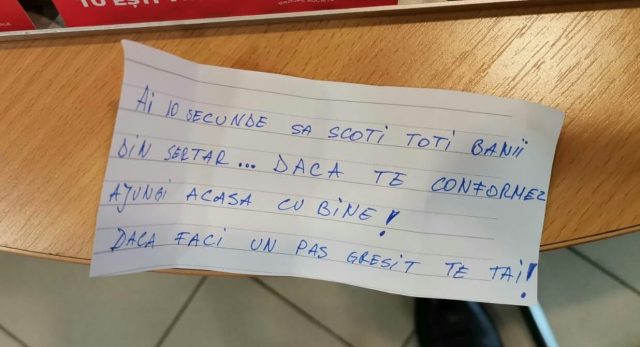 10 EȘTI
AI 10 SECUNDE SA SCOTI TOTI BANII
DIN SERTAR... DACA TE CONFORMEZ
AJUNGI ACASA CU BINE!
DACA FACI UN PAS GRESIT TE TAI!